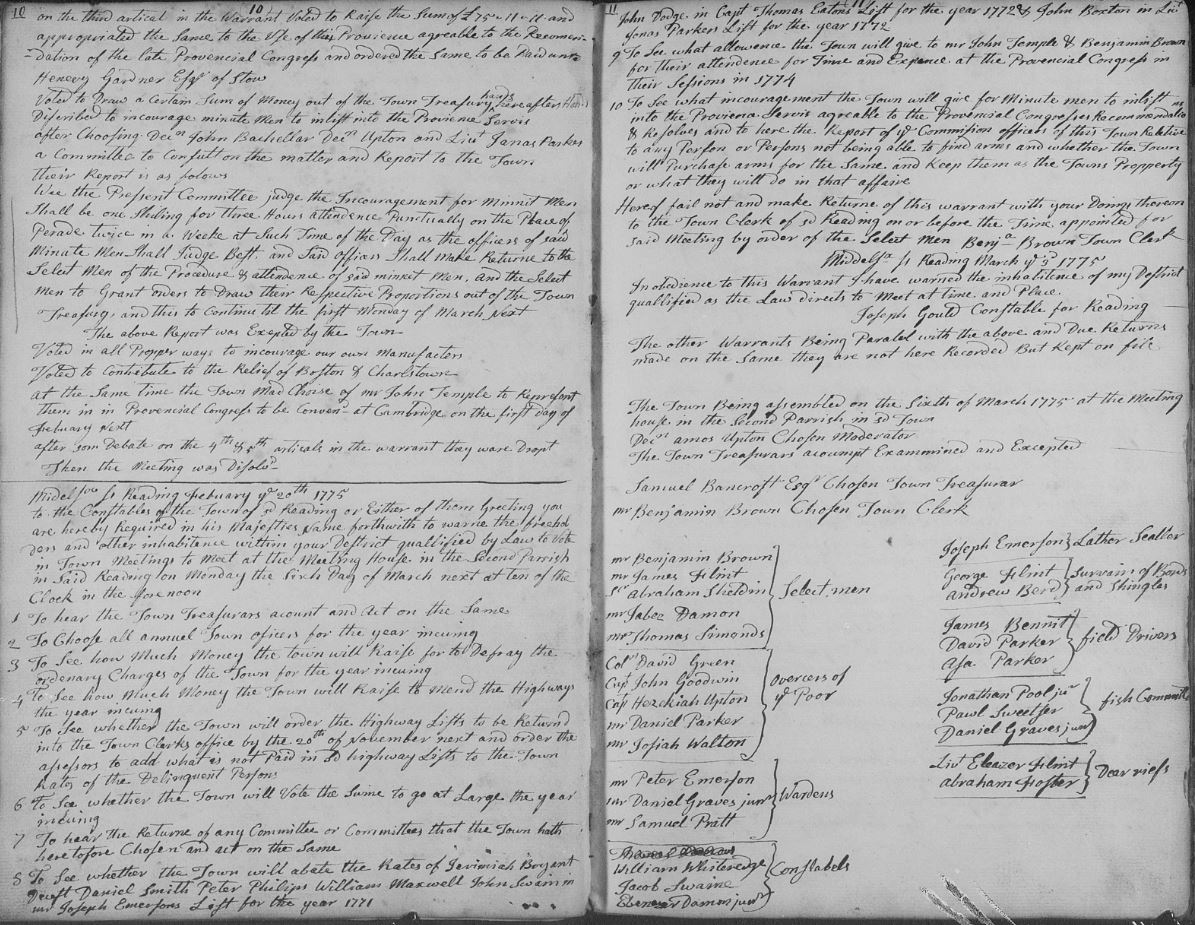 10
10
on the third artical in the Warrant Voted to Raise the Sum of £75-11-11 and
appropriated the Same to the Use of this Provience agreable to the Recomen-
-dation of the late Provincial Congress and ordered the Same to be Paid unto
Henery Gardner Esqr of Stow
Voted to Draw a Certain Sum of Money out of the Town Treasury hereafter
Discribed to incourage minute Men to inlist into the Provience Servis
after Choosing Decn John Bachellar Decn Upton and Liut Janas Parker
a Committee to Consult on the matter and Report to the Town
their Report is as folows
Wee the Present Committee judge the Incouragement for Minnit Men
Shall be one Shiling for three Hours attendence Punctually on the Place of
Perade twice in a Weeke at Such Time of the Day as the officers of said
Minute Men Shall Judge Best and Said officers Shall Make Returne to the
Select Men of the Procedure & attendence of said minnit Men, and the Select
Men to Grant orders to Draw their Respective Proportions out of the Town
Treasury, and this to Continue til the first Monday of March Next
The above Report was Exepted by the Town
Voted in all Propper ways to incourage our own Manufactors
Voted to Contribute to the Relief of Boston & Charlstown
at the Same time the Town Mad Choise of mr John Temple to Represont
them in in Provincial Congress to be Convend at Cambridge on the first Day of
February next
after som Debate on the 4th & 5th articals in the warrant they ware Dropt
Then the Meeting was Disolvd
Midelsex ss Reading February ye 20th 1775
to the Constables of the Town of sd Reading or Either of them Greeting you
are hereby Required in his Majesties Name forthwith to warne the freehol
ders and other inhabitence within your District quallified by Law to Vote
in Town Meetings to Meet at the Meeting House in the Second Parrish
in Said Reading on Monday the Sixth Day of March next at ten of the
Clock in the forenoon
1 To hear the Town Treasurars acount and Act on the Same
2 To Choose all annual Town officers for the year insuing
3 To See how Much Money the town will Raise for to Defray the
ordenary Charges of the Town for the year insuing
4 To See how Much Money the Town will Raise to Mend the Highways
the year insuing
5 To See whether the Town will order the Highway Lists to be Returnd
into the Town Clerks office by the 20th of November next and order the
assessors to add what is not Paid in sd highway Lists to the Town
Rates of the Delinquent Persons
6 To See whether the Town will Vote the Swine to go at Large the year
insuing
7 To hear the Returne of any Committee or Committees that the Town hath
heretofore Chosen and act on the Same
8 To See whether the Town will abate the Rates of Jerimiah Bryant
Decst Daniel Smith Peter Philips William Maxwell John Swain in
mr Joseph Emersons List for the year 1771
11
11
John Dodge in Capt Thomas Eatons List for the year 1772 & John Boxton in Liut
Jonas Parkers List for the year 1772
9 To See what allowence the Town will give to mr John Temple & Benjamin Brown
for their attendence for Time and Expence at the Provencial Congress in
their Sessions in 1774
10 To See what incouragement the Town will give for Minute men to inlist
into the Proviena Servis agreable to the Provencial Congresses Recommendations
& Resolves and to here the Report of ye Commision officers of this Town Relitive
to any Person or Persons not being able to find arms and whether the Town
will Purchase arms for the Same and Keep them as the Towns Propperty
or what they will do in that affaire
Hereof fail not and make Returne of this warrant with your Doings thereon
to the Town Clerk of sd Reading on or before the Time appointed for
said Meeting by order of the Select Men Benja Brown Town Clerk
Middelsx ss Reading March ye 3 1775
In obedience to this Warrant I have warned the inhabitence of my District
quallified as the Law directs to Meet at time and Place.
Joseph Gould Constable for Reading
The other Warrants Being Paralel with the above and Due Returns
made on the Same they are not here Recorded But Kept on file
The Town Being assembled on the Sixth of March 1775 at the Meeting
house in the Second Parrish in sd Town
Decn amos Upton Chosen Moderator
The Town Treasurars acoumpt Exammined and Excepted
Samuel Bancroft Esqr Chosen Town Treasurar
mr Benjamin Brown Chosen Town Clerk
mr Benjamin Brown
mr James Flint
Sr abraham Sheldin
mr Jabez Damon
mr Thomas Simonds
Select men
Colo David Green
Capt John Goodwin
Cap Hezekiah Upton
mr Daniel Parker
mr Josiah Walton
Overcers of
ye Poor
mr Peter Emerson
mr Daniel Graves junr
mr Samuel Pratt
Wardens
William Whiteredge
Jacob Swaine
Ebenezar Damon junr
Constabels
Joseph Emerson
Lather Sealler
George Flint
andrew Berd
Survairs of Bords
and Shingles
James Bennit
David Parker
Asa Parker
field Drivers
Jonathan Pool jur
Pawl Sweetser
Daniel Graves junr
fish Committe
Liut Eleazer Flint
abraham Foster
Dear riefs